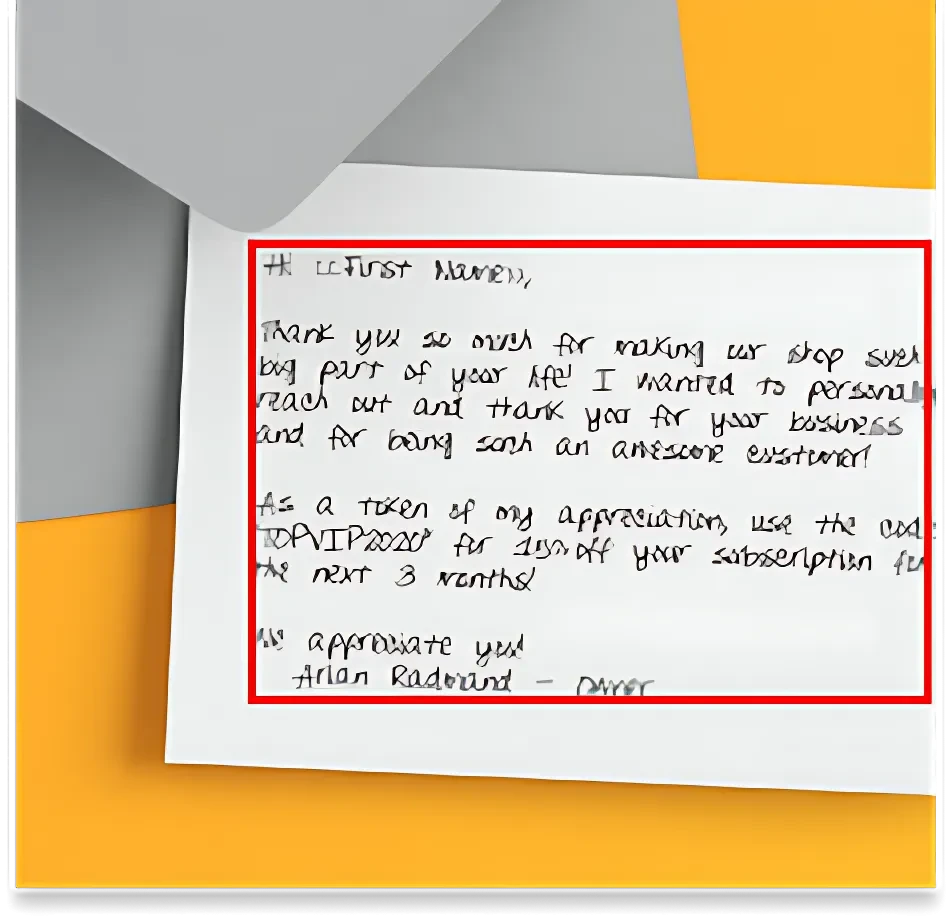 Hi <<First Name>>,
Thank you so much for making our shop such
big part of your life! I wanted to personal
reach out and thank you for your business
and for being such an awesome customer!
As a token of my appreciation, use the cod
TOPVIP2020 for off your subscription for
the next 3 months!
We appreciate you!
Arlan - Owner